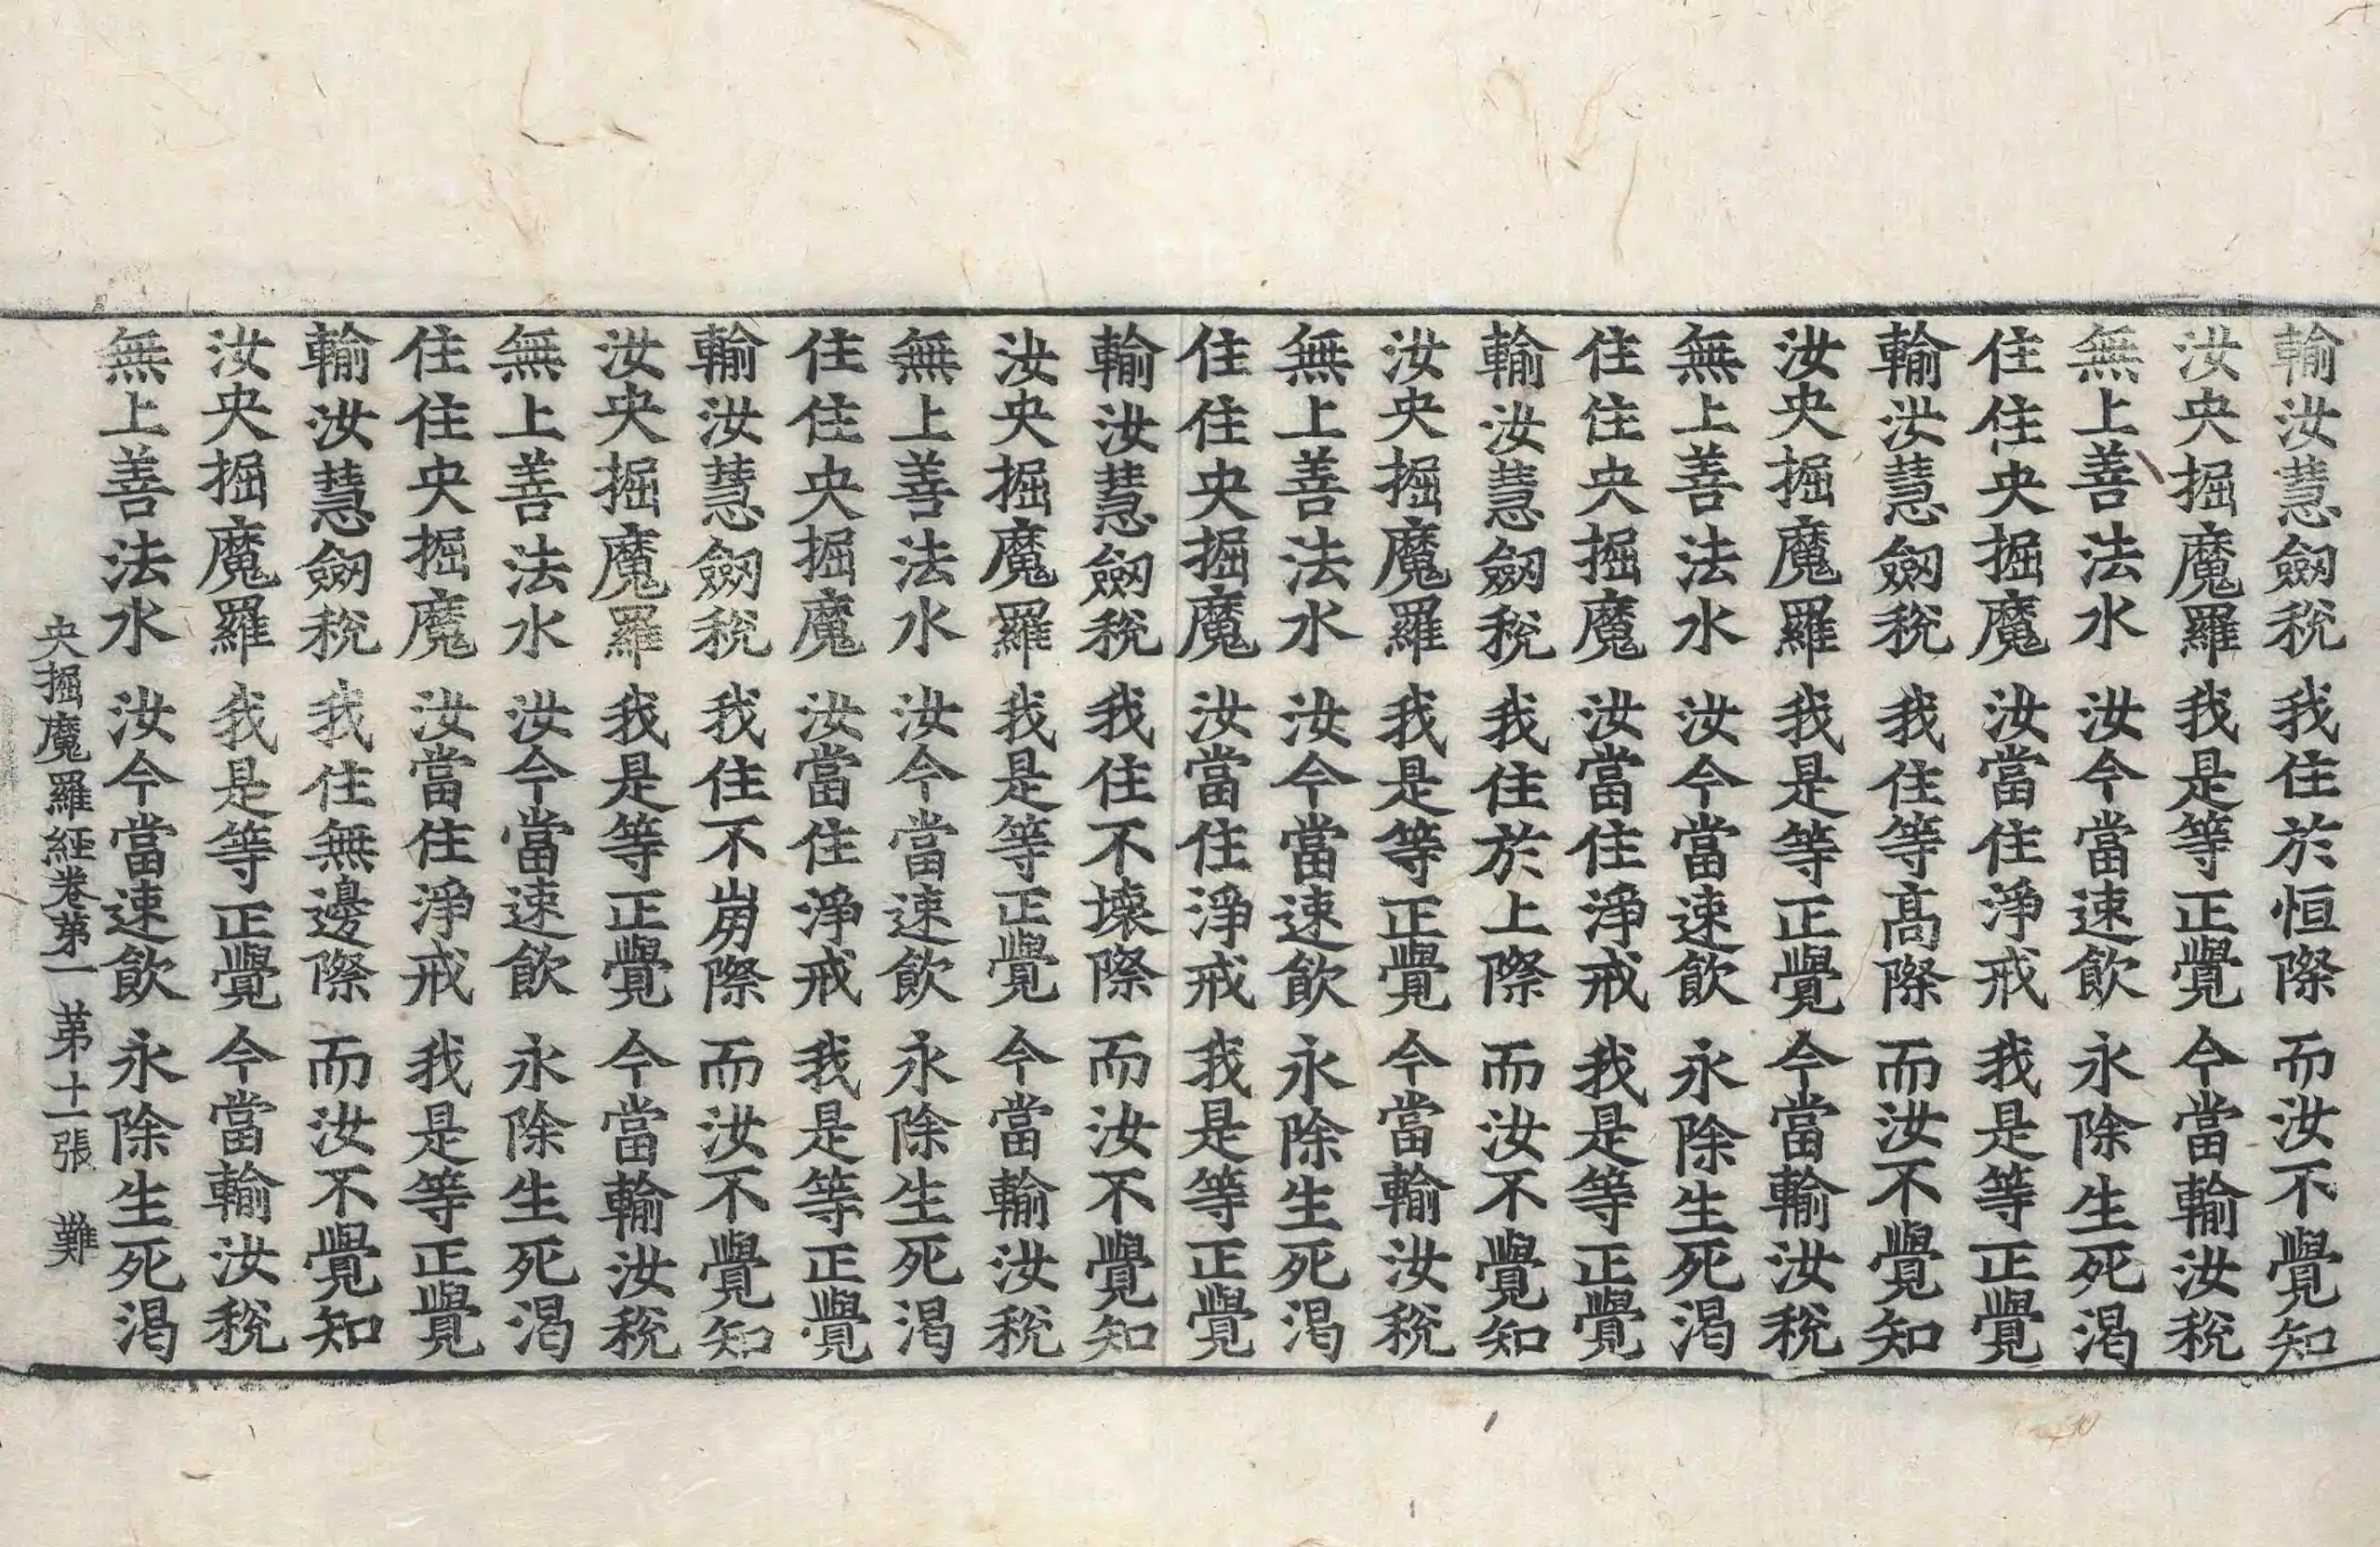 輸汝慧劒稅 我住於恒際 而汝不覺知
汝央掘魔羅 我是等正覺 今當輸汝稅
無上善法水 汝今當速飮 永除生死渴
住住央掘魔 汝當住淨戒 我是等正覺
輸汝慧劒稅 我住等高際 而汝不覺知
汝央掘魔羅 我是等正覺 今當輸汝稅
無上善法水 汝今當速飮 永除生死渴
住住央掘魔 汝當住淨戒 我是等正覺
輸汝慧劒稅 我住於上際 而汝不覺知
汝央掘魔羅 我是等正覺 今當輸汝稅
無上善法水 汝今當速飮 永除生死渴
住住央掘魔 汝當住淨戒 我是等正覺
輸汝慧劒稅 我住不壞際 而汝不覺知
汝央掘魔羅 我是等正覺 今當輸汝稅
無上善法水 汝今當速飮 永除生死渴
住住央掘魔 汝當住淨戒 我是等正覺
輸汝慧劒稅 我住不崩際 而汝不覺知
汝央掘魔羅 我是等正覺 今當輸汝稅
無上善法水 汝今當速飮 永除生死渴
住住央掘魔 汝當住淨戒 我是等正覺
輸汝慧劒稅 我住無邊際 而汝不覺知
汝央掘魔羅 我是等正覺 今當輸汝稅
無上善法水 汝今當速飮 永除生死渴
央掘魔羅經卷第一 第十一張 難